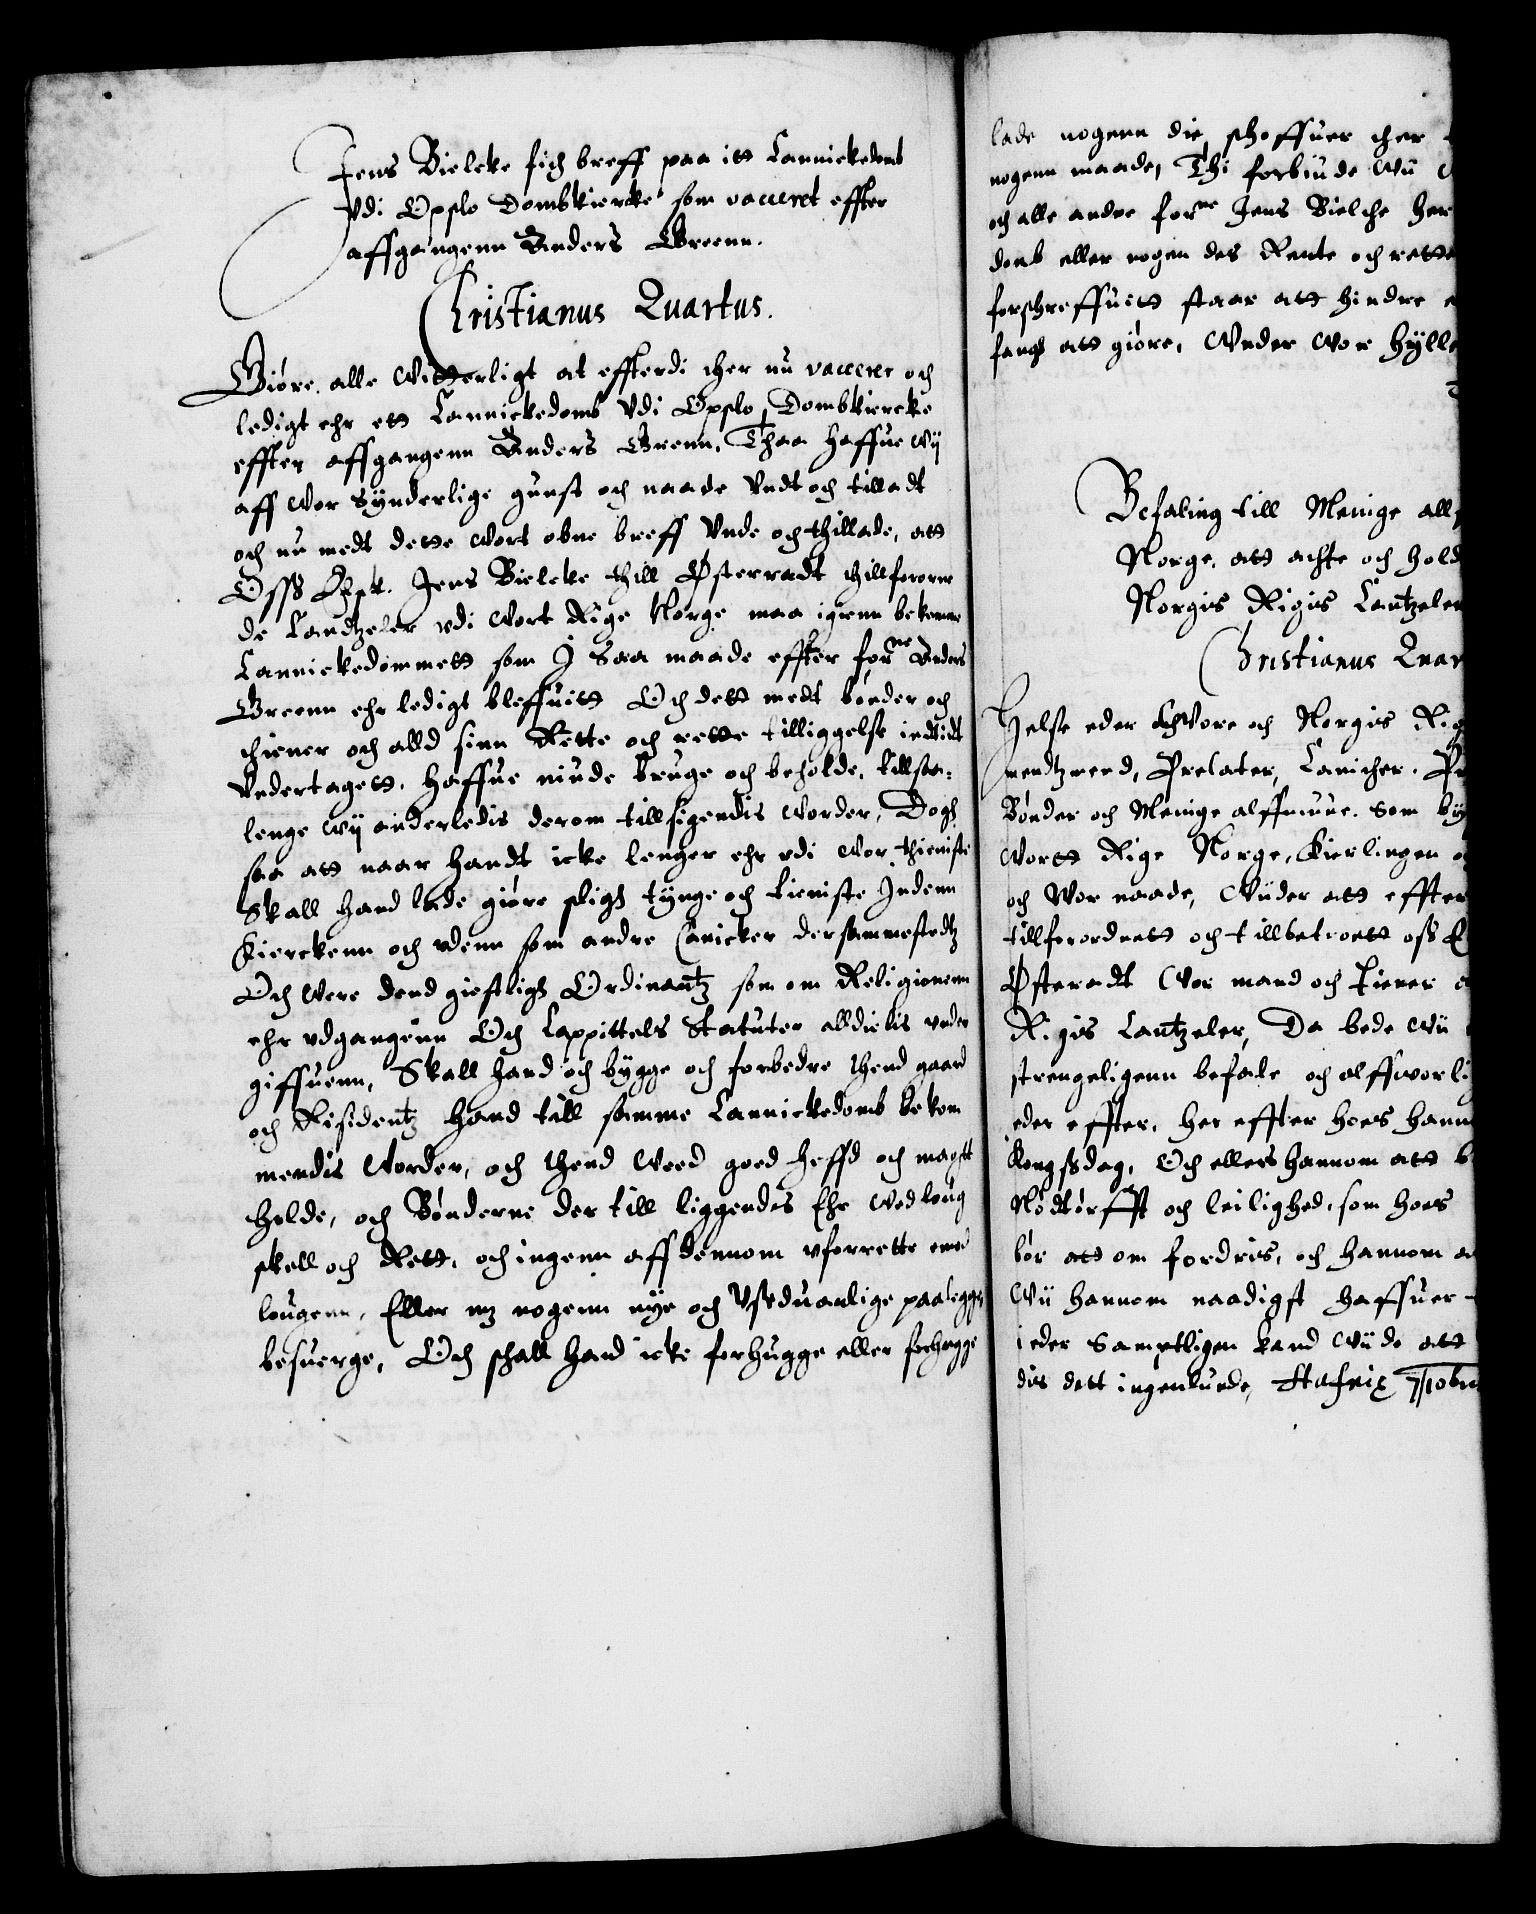 Jens Bielcke fich breff paa itt Cannickedomb
Vdi Opslo Dombkiercke som vacceret effter
affgangenn Anders Greenn.
Christianus Quartus.
Giøre alle Witterligt at effterdi cher nu vaccerer och
ledigt ehr ett Cannickedomb Vdi Opslo Dombkiercke
effter affgangenn Anders Grenn, Thaa haffue Wij
aff Wor Synderlige gunst och naade Vndt och tilladt
och nu medt dette Wort obne breff Vnde och thillade, att
Oss Elsk. Jens Bielcke thill Østerradt thillforornede
Candtzeler vdi Wort Rige Norge maa igienn bekomme
Cannickedømmett som J Saa maade effter forne Anders
Greenn ehr ledigt bleffuitt Och dett medt bønder och
thiener och alld sinn Rette och rette tilliggelse indtidt
Vndertagett, haffue niude bruge och beholde, tillsaa-
lenge Wij anderledis derom tillsigendis Worder, Dogh
saa att naar handt icke lenger ehr vdi Wor thieniste
Skall hand lade giøre sligh tynge och tieniste Indenn
Kierckenn och vdenn som andre Canicker dersammestedtz
Och Were dend giestligh Ordinantz som om Religionenn
ehr vdgangenn Och Cappittels Statuter alldielis vnder
giffuenn, Skall hand och bygge och forbedre thend gaard
och Residentz hand till samme Cannickedomb bekom
mendis Worder, och thend Weed goed heffd och magtt
holde, och Bønderne der till liggendes Ehr Wed loug
skell och Rett, och ingenn aff dennom vforrette emod
lougenn, Eller mz nogenn nye och Vseduanlige paalegge
besuerge, Och schall hand icke forhugge eller forhugge
lade nogenn die schoffuer cher
nogenn maade, Thi forbiude Wii
och alle andre forne Jens Bielche her
domb eller nogen des Rente och rette
forschreffuitt staar att hindre
fang att giøre, Vnder Wor hylle
Befaling till Menige all
Norge, att achte och hold
Norgis Rigis Cantzeler
Christianus Quar
Helse eder Wore och Norgis Rig
mendtzmend, Prelater, Canicher, Pr
Bønder och Menige alffmuue, Som byg
Wortt Rige Norge, Kierlingen
och Wor naade, Wiider att effter
tillforordnett och tillbetroett oss E
Østeradt Wor mand och tiener
Rigis Cantzeler, Da bede Wii
strengeligenn befale och alffworlig
eder effter, her effter hoes hann
Kongssdag, Och ellers hannom att
Nødtørfft och leilighed, som hoes
bør att om fordris, och hannom
Wii hannom naadigst haffuer
i eder Samptligen kand Wiide att
dis dett ingenlunde,